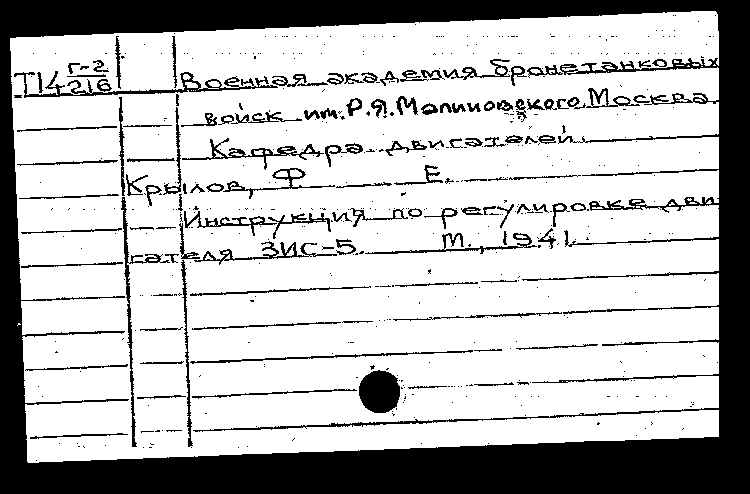 Т14 Г-2/216 Военная академия бронетанковых
войск им. Р.Я. Малиновского. Москва.
Кафедра двигателей.
Крылов, Ф. Е.
Инструкция по регулировке дви-
гателя ЗИС-5. М., 1941.